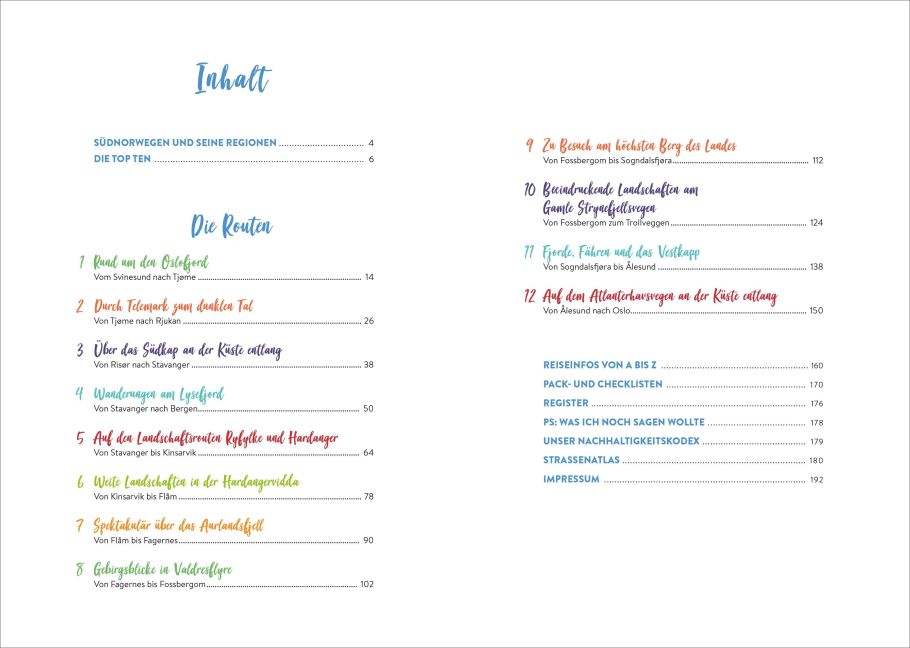 Inhalt
SÜDNORWEGEN UND SEINE REGIONEN 4
DIE TOP TEN 6
Die Routen
1 Rund um den Oslofjord
Vom Svinesund nach Tjøme 14
2 Durch Telemark zum dunklen Tal
Von Tjøme nach Rjukan 26
3 Über das Südkap an der Küste entlang
Von Risør nach Stavanger 38
4 Wanderungen am Lysefjord
Von Stavanger nach Bergen 50
5 Auf den Landschaftsrouten Ryfylke und Hardanger
Von Stavanger bis Kinsarvik 64
6 Weite Landschaften in der Hardangervidda
Von Kinsarvik bis Flåm 78
7 Spektakulär über das Aurlandsfjell
Von Flåm bis Fagernes 90
8 Gebirgsblicke in Valdresflyre
Von Fagernes bis Fossbergom 102
9 Zu Besuch am höchsten Berg des Landes
Von Fossbergom bis Sogndalsfjøra 112
10 Beeindruckende Landschaften am
Gamle Strynefjellsvegen
Von Fossbergom zum Trollveggen 124
11 Fjorde, Fähren und das Vestkapp
Von Sogndalsfjøra bis Ålesund 138
12 Auf dem Atlanterhavsvegen an der Küste entlang
Von Ålesund nach Oslo 150
REISEINFOS VON A BIS Z 160
PACK- UND CHECKLISTEN 170
REGISTER 176
PS: WAS ICH NOCH SAGEN WOLLTE 178
UNSER NACHHALTIGKEITSKODEX 179
STRASSENATLAS 180
IMPRESSUM 192